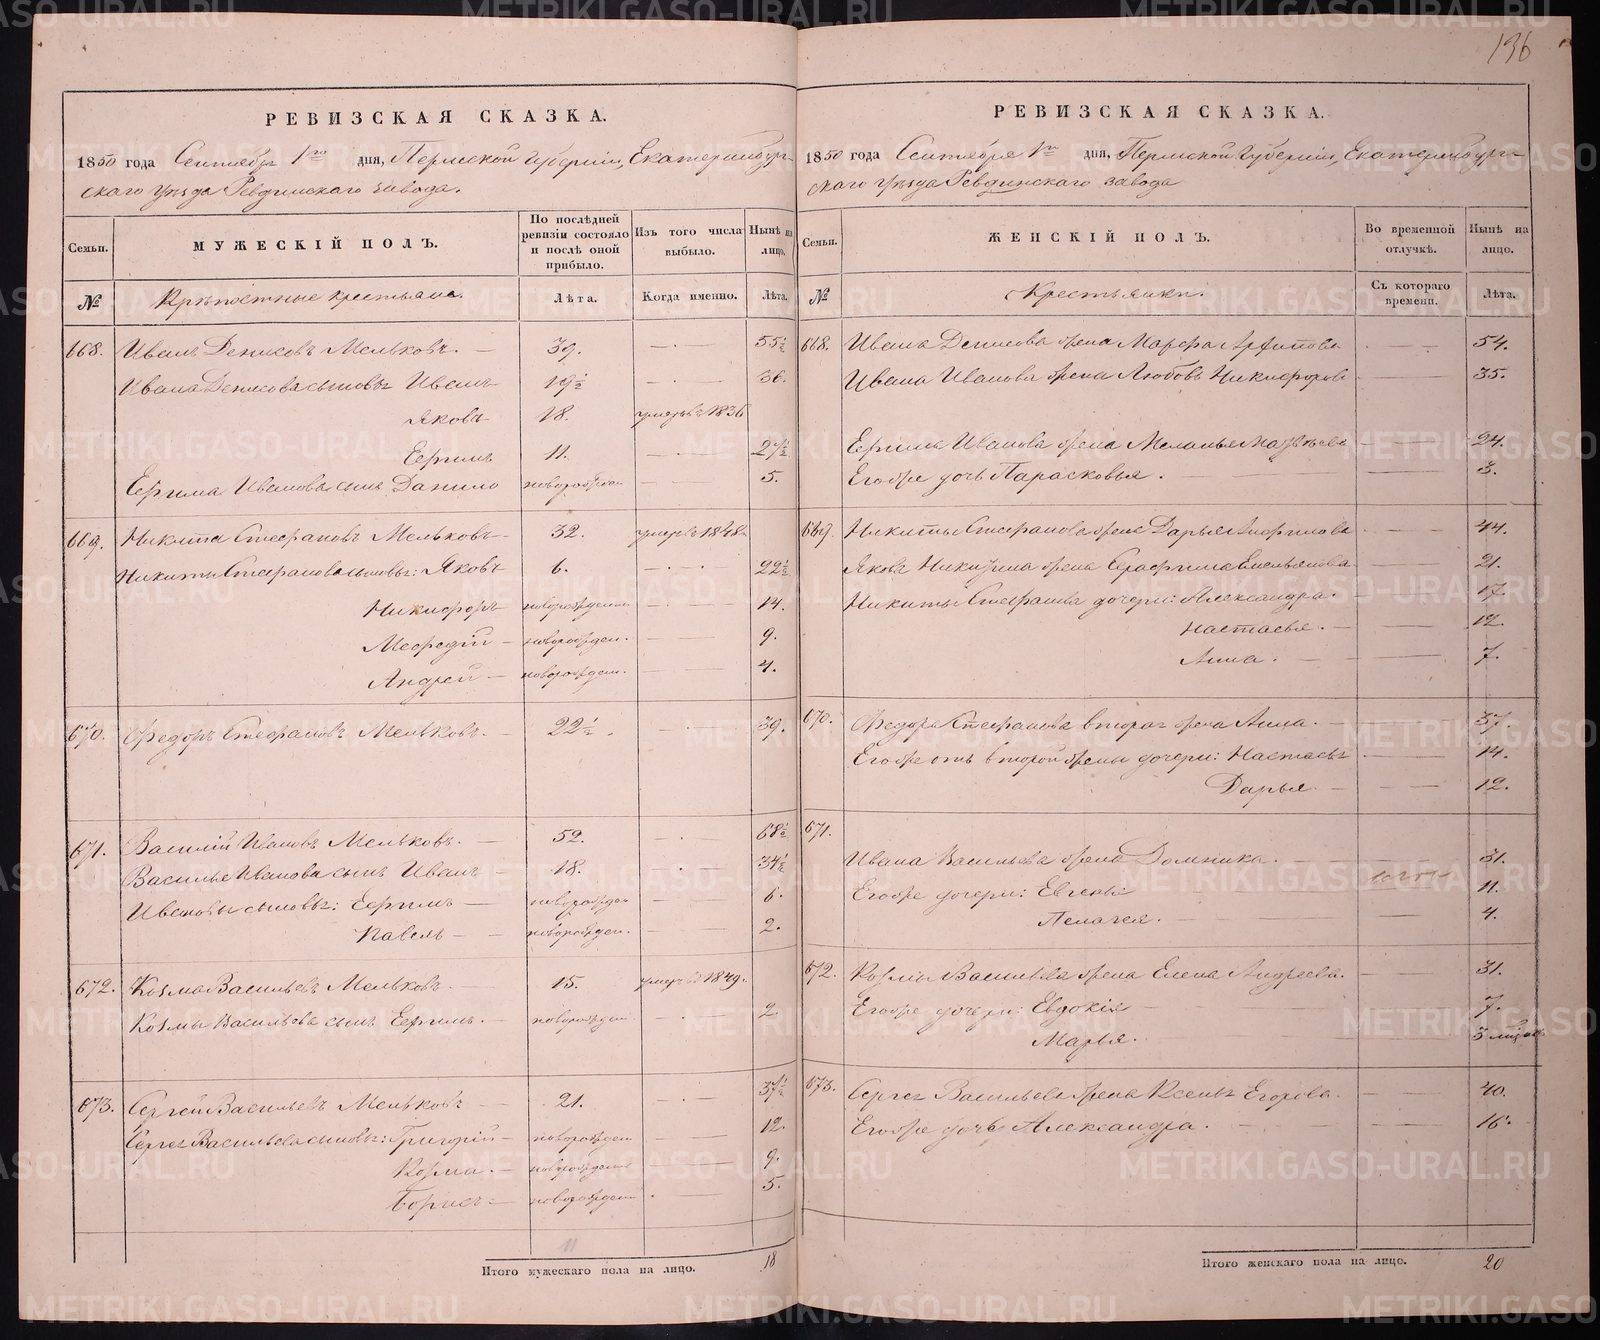 136
РЕВИЗСКАЯ СКАЗКА.
1850 года Сентября 1го дня, Пермской губерніи, Екатеринбург-
скаго уѣзда Ревдинскаго завода.
Семьи.
МУЖЕСКІЙ ПОЛЪ.
По послѣдней ревизіи состояло и послѣ оной прибыло.
Изъ того числа выбыло.
Нынѣ на лицо.
№ Крѣпостные крестьяне. Лѣта. Когда именно. Лѣта.
668. Иванъ Денисовъ Мельковъ. — 39. — 55½
Ивана Денисова сыновья Иванъ 19½ — 36.
Яковъ 18. умеръ въ 1836
Ефимъ 11. — 27½
Ефима Иванова сынъ Данило новорожден — 5.
669. Никита Стефановъ Мельковъ 32. умеръ въ 1848.
Никиты Стефанова сыновья: Яковъ 6. — 22½
Никифоръ новорожден — 14.
Мефодій — новорожден. — 9.
Андрей — новорожден. — 4.
670. Федоръ Стефановъ Мельковъ. — 22½. — 39.
671. Василій Ивановъ Мельковъ. 52. — 68½
Василья Иванова сынъ Иванъ — 18. — 34½
Ивановы сыновья: Ефимъ — новорожден — 6.
Павелъ — новорожден. — 2.
672. Козма Васильевъ Мельковъ. 15. умеръ въ 1849.
Козмы Васильева сынъ Ефимъ. — новорожден — 2
673. Сергей Васильевъ Мельковъ — 21. — 37½
Сергея Васильева сыновья: Григорій — новорожден — 12.
Козма. — новорожден — 9.
Борисъ — новорожден — 5.
11
Итого мужескаго пола на лицо. 18
РЕВИЗСКАЯ СКАЗКА.
1850 года Сентября 1го дня, Пермской губерніи, Екатеринбург-
скаго уѣзда Ревдинскаго завода
Семьи.
ЖЕНСКІЙ ПОЛЪ.
Во временной отлучкѣ.
Нынѣ на лицо.
№ Крестьянки. Съ котораго времени. Лѣта.
668. Ивана Денисова жена Марфа — 54.
Ивана Иванова жена Любовь Никифорова — 35.
Ефима Иванова жена Меланья — 24.
Егоже дочь Парасковья. — 3.
669. Никиты Стефанова жена Дарья — 44.
Якова Никитина жена Серафима — 21.
Никиты Стефанова дочери: Александра. — 17.
Настасья. — 12.
Анна. — 7.
670. Федора Стефанова вторая жена Анна. — 37.
Егоже отъ второй жены дочери: Настасья — 14.
Дарья. — 12.
671.
Ивана Васильева жена Домника. — 31.
Егоже дочери: Евгенья — 11.
Пелагея. — 4.
672. Козмы Васильева жена Елена Андреева. — 31.
Егоже дочери: Евдокія — 7.
Марья. — 3 мѣсяцъ
673. Сергея Васильева жена Ксенья Егорова. — 40.
Егоже дочь Александра. — 16.
Итого женскаго пола на лицо. 20
METRIKI.GASO-URAL.RU